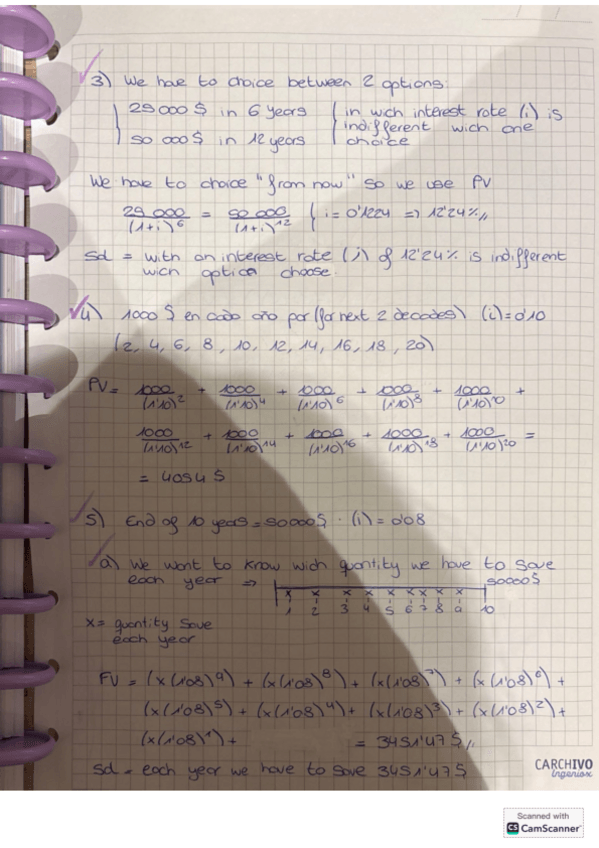 3) We have to choice between 2 options:
29 000 $ in 6 years
50 000 $ in 12 years
in wich interest rate (i) is
indifferent wich one
choice
We have to choice "from now" so we use PV
29 000 / (1+i)^6 = 50 000 / (1+i)^12 i = 0'1224 => 12'24%
Sol = with an interest rate (i) of 12'24% is indifferent
wich option choose.
4) 1000 $ en cada año par (for next 2 decades) (i) = 0'10
(2, 4, 6, 8, 10, 12, 14, 16, 18, 20)
PV = 1000/(1'10)^2 + 1000/(1'10)^4 + 1000/(1'10)^6 + 1000/(1'10)^8 + 1000/(1'10)^10 +
1000/(1'10)^12 + 1000/(1'10)^14 + 1000/(1'10)^16 + 1000/(1'10)^18 + 1000/(1'10)^20 =
= 4054 $
5) End of 10 years = 50000 $ · (i) = 0'08
a) We want to know wich quantity we have to save
each year => 50000 $
x x x x x x x x x
1 2 3 4 5 6 7 8 9 10
x = quantity save
each year
FV = (x(1'08)^9) + (x(1'08)^8) + (x(1'08)^7) + (x(1'08)^6) +
(x(1'08)^5) + (x(1'08)^4) + (x(1'08)^3) + (x(1'08)^2) +
(x(1'08)^1) + = 3451'47 $
Sol = each year we have to save 3451'47 $
CARCHIVO
Ingeniox
Scanned with
CS CamScanner